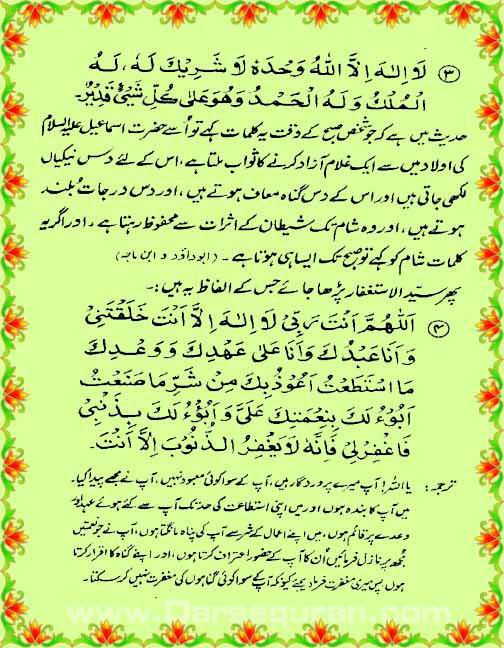 (۳) لَا اِلٰهَ اِلَّا اللّٰهُ وَحْدَهٗ لَا شَرِيْكَ لَهٗ، لَهُ
الْمُلْكُ وَلَهُ الْحَمْدُ وَهُوَ عَلٰى كُلِّ شَيْئٍ قَدِيْرٌ۔
حدیث میں ہے کہ جو شخص صبح کے وقت یہ کلمات کہے تو اُسے حضرت اسماعیل علیہ السلام
کی اولاد میں سے ایک غلام آزاد کرنے کا ثواب ملتا ہے، اس کے لئے دس نیکیاں
لکھی جاتی ہیں اور اس کے دس گناہ معاف ہوتے ہیں، اور دس درجات بلند
ہوتے ہیں، اور وہ شام تک شیطان کے اثرات سے محفوظ رہتا ہے، اور اگر یہ
کلمات شام کو کہے تو صبح تک ایسا ہی ہوتا ہے۔ (ابوداؤد و ابن ماجہ)
پھر سیّد الاستغفار پڑھا جائے جس کے الفاظ یہ ہیں:۔
(۴) اَللّٰهُمَّ اَنْتَ رَبِّيْ لَا اِلٰهَ اِلَّا اَنْتَ خَلَقْتَنِيْ
وَ اَنَا عَبْدُكَ وَ اَنَا عَلٰى عَهْدِكَ وَ وَعْدِكَ
مَا اسْتَطَعْتُ اَعُوْذُ بِكَ مِنْ شَرِّ مَا صَنَعْتُ
اَبُوْءُ لَكَ بِنِعْمَتِكَ عَلَيَّ وَ اَبُوْءُ لَكَ بِذَنْبِيْ
فَاغْفِرْ لِيْ فَاِنَّهٗ لَا يَغْفِرُ الذُّنُوْبَ اِلَّا اَنْتَ۔
ترجمہ: یا اللہ! آپ میرے پروردگار ہیں، آپ کے سوا کوئی معبود نہیں، آپ نے مجھے پیدا کیا۔
میں آپ کا بندہ ہوں اور میں اپنی استطاعت کی حد تک آپ سے کئے ہوئے عہد اور
وعدے پر قائم ہوں، میں اپنے اعمال کے شر سے آپ کی پناہ مانگتا ہوں، آپ نے جو نعمتیں
مجھ پر نازل فرمائیں اُن کا آپ کے حضور اعتراف کرتا ہوں، اور اپنے گناہ کا اقرار کرتا
ہوں پس میری مغفرت فرما دیجئے کیونکہ آپ کے سوا کوئی گناہوں کی مغفرت نہیں کر سکتا۔
www.Darsequran.com